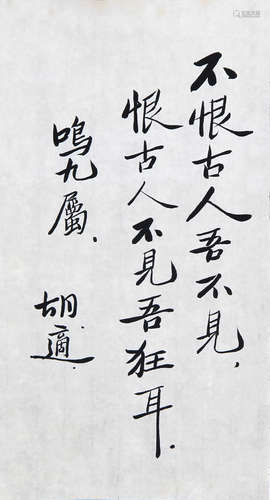 不恨古人吾不見，
恨古人不見吾狂耳．
鳴九屬．
胡適．